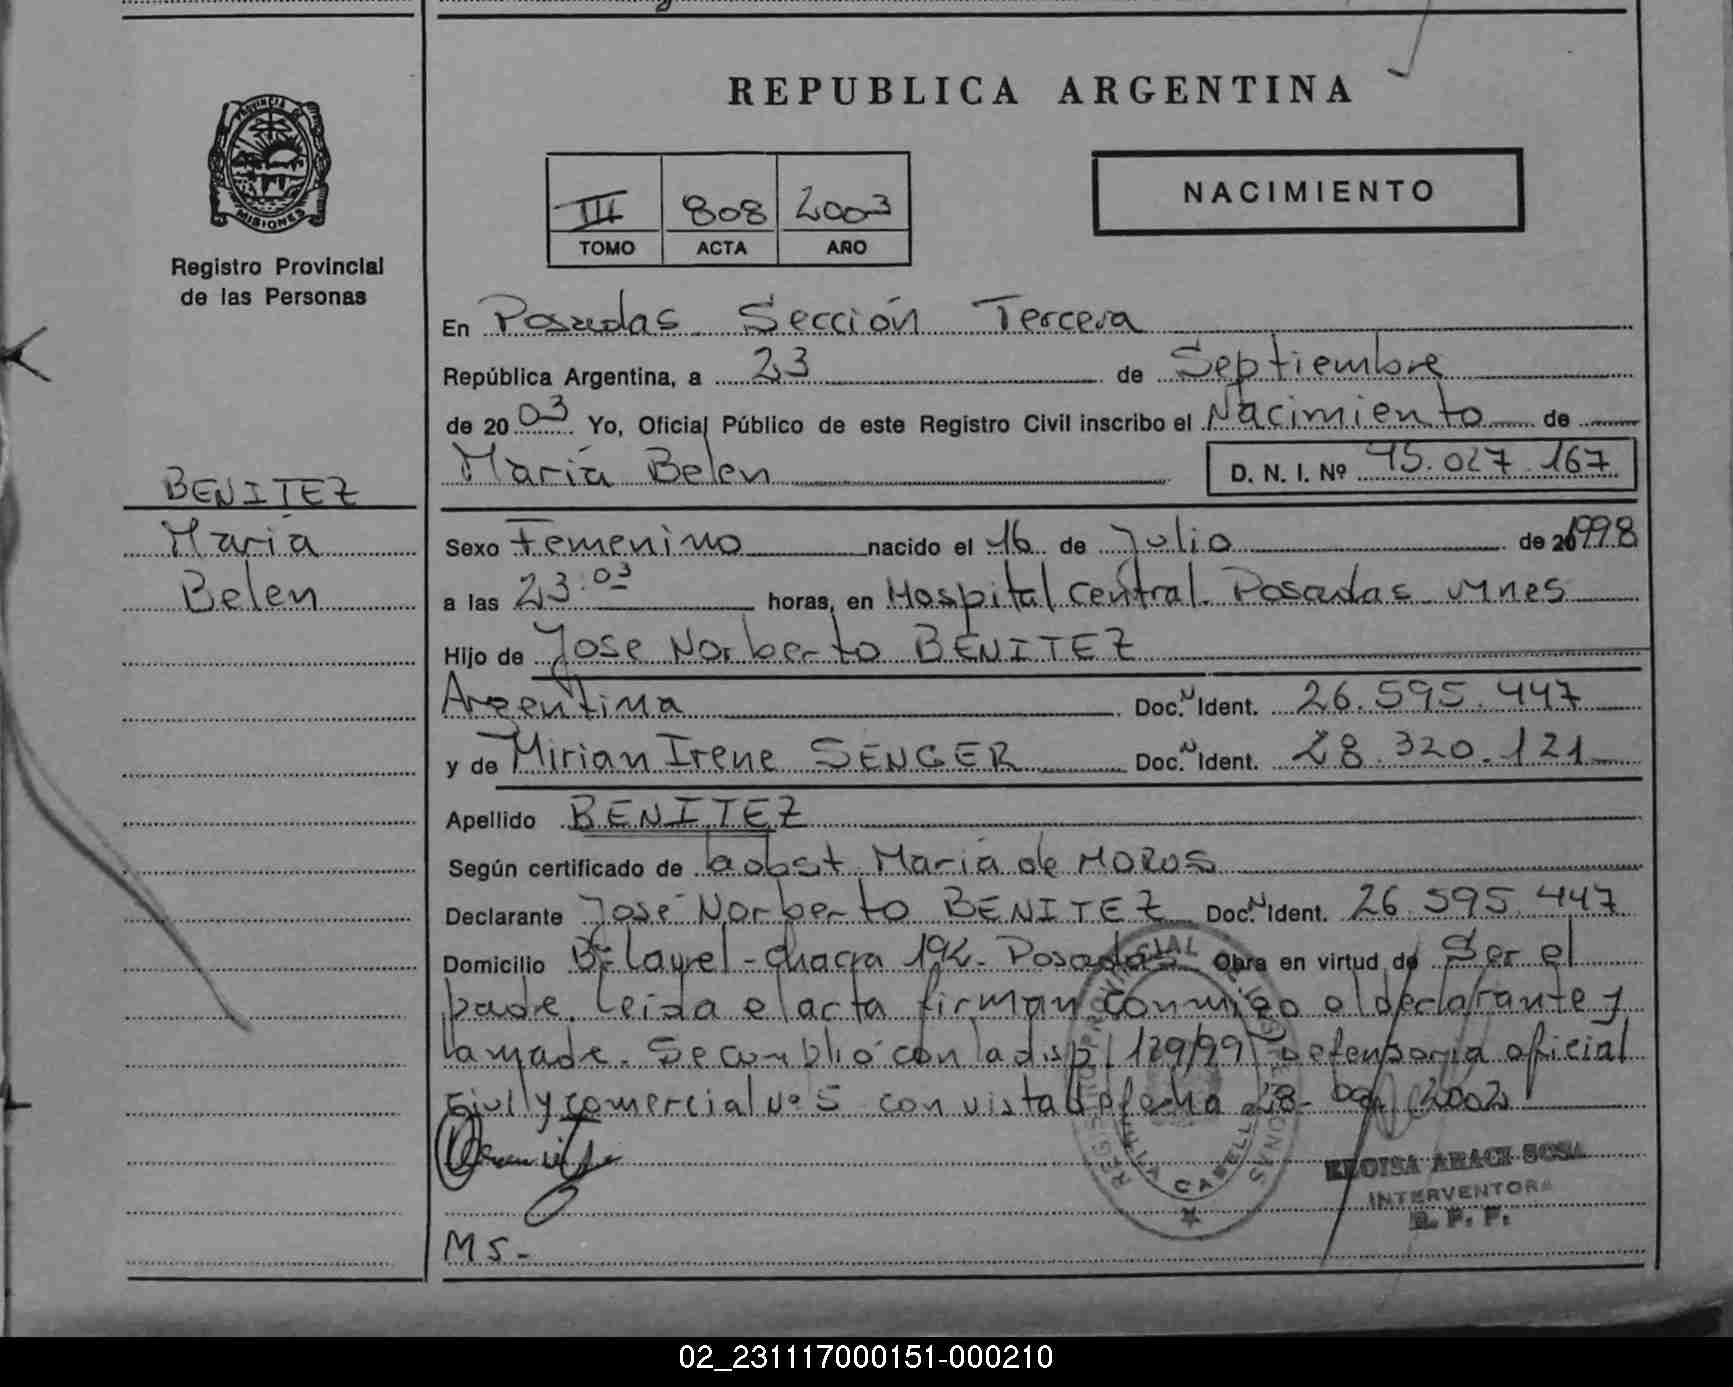 REPUBLICA ARGENTINA
PROVINCIA DE
MISIONES
Registro Provincial
de las Personas
III 808 2003
TOMO ACTA AÑO
NACIMIENTO
En Posadas Sección Tercera
República Argentina, a 23 de Septiembre
de 20 03 Yo, Oficial Público de este Registro Civil inscribo el Nacimiento de
María Belen D. N. I. Nº 45.027.167
BENITEZ
María
Belen
Sexo Femenino nacido el 16 de Julio de 1998
a las 23:03 horas, en Hospital Central. Posadas Mnes
Hijo de Jose Norberto BENITEZ
Argentina Doc. N Ident. 26.595.447
y de Mirian Irene SENGER Doc. N Ident. 28.320.121
Apellido BENITEZ
Según certificado de María de MOROS
Declarante José Norberto BENITEZ Doc. N Ident. 26.595.447
Domicilio Bº Layrel - chacra 192. Posadas Obra en virtud de Ser el
padre. Leida el acta firman conmigo el declarante y
la madre. Se cumplió con la disp. 129/99 Defensoria oficial
Civil y comercial Nº 5 con vista de fecha 28- 2002
ELOISA ARACI SOSA
INTERVENTORA
R. P. P.
MS.-
02_231117000151-000210